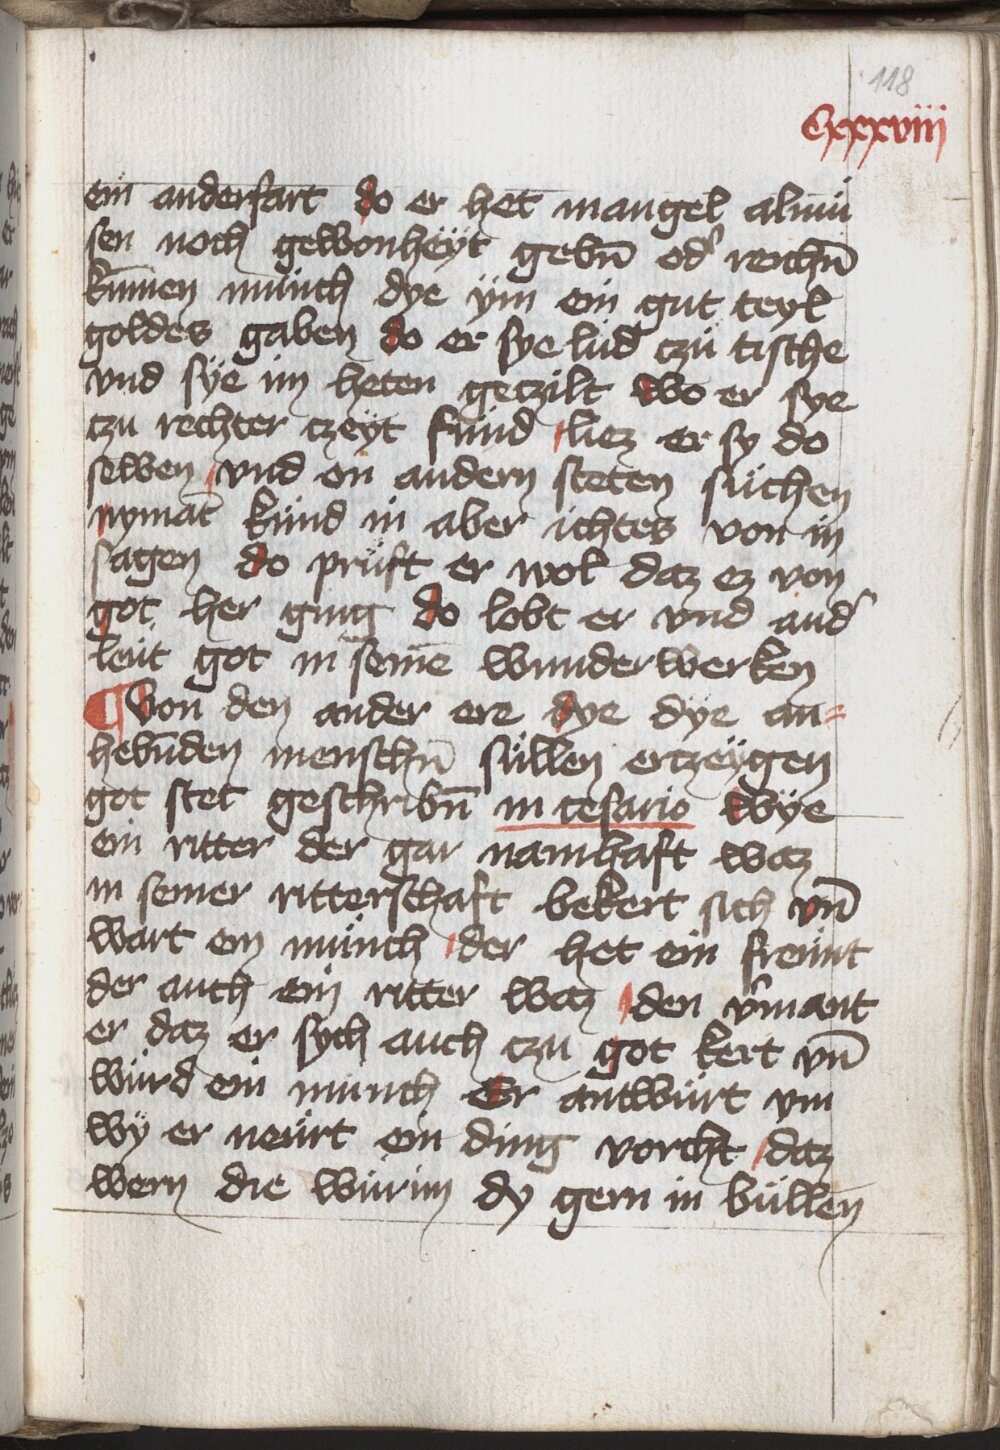 118
Cxxxviii
ein anderfart do er het mangel almů
sen noch gewonheÿt gebn̄ od' reichn̄
kūmen münch dye ÿm ein gut teyl
goldes gaben do er sye lůd czů tische
vnd sÿe im heten geczilt Wo er sye
czu rechter czeÿt fůnd liez er sy do
selben vnd en andern steten sůchen
nymāt kůnd in aber ichtes von in
sagen do prüft er wol daz ez von
got her ging do lobt er vnd and'
leůt got in seinē wunderwerken
¶ Von den ander ere dye dÿe an=
hebn̄den menschn̄ sůllen erczeÿgen
got stet geschribn̄ in cesario Wÿe
ein ritter der gar namhaft waz
in seiner ritterschaft bekert sich vn̄
wart ein münch der het ein freůnt
der auch ein ritter waz den v'mant
er daz er sych auch czu got kert vn̄
würd ein münch Er antwůrt ym
wÿ er neůrt ein ding vorcht daz
wern die wůrm dy gern in büllen